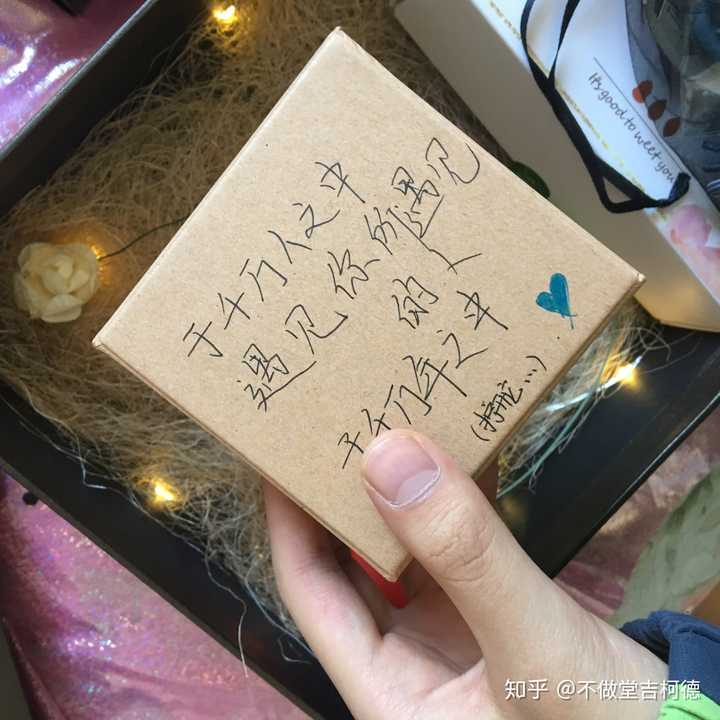 于千万人之中
遇见你所遇见
的人
于千万年之中
It's good to meet you
知乎 @不做堂吉柯德